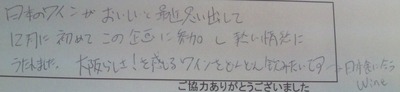 日本のワインがおいしいと最近思い出して
12月に初めてこの企画に参加し熱い情熱に
うたれました。大阪らしさ!を感じるワインをどんどん飲みたいです → 日本酒いたら
Wine
ご協力ありがとうございました